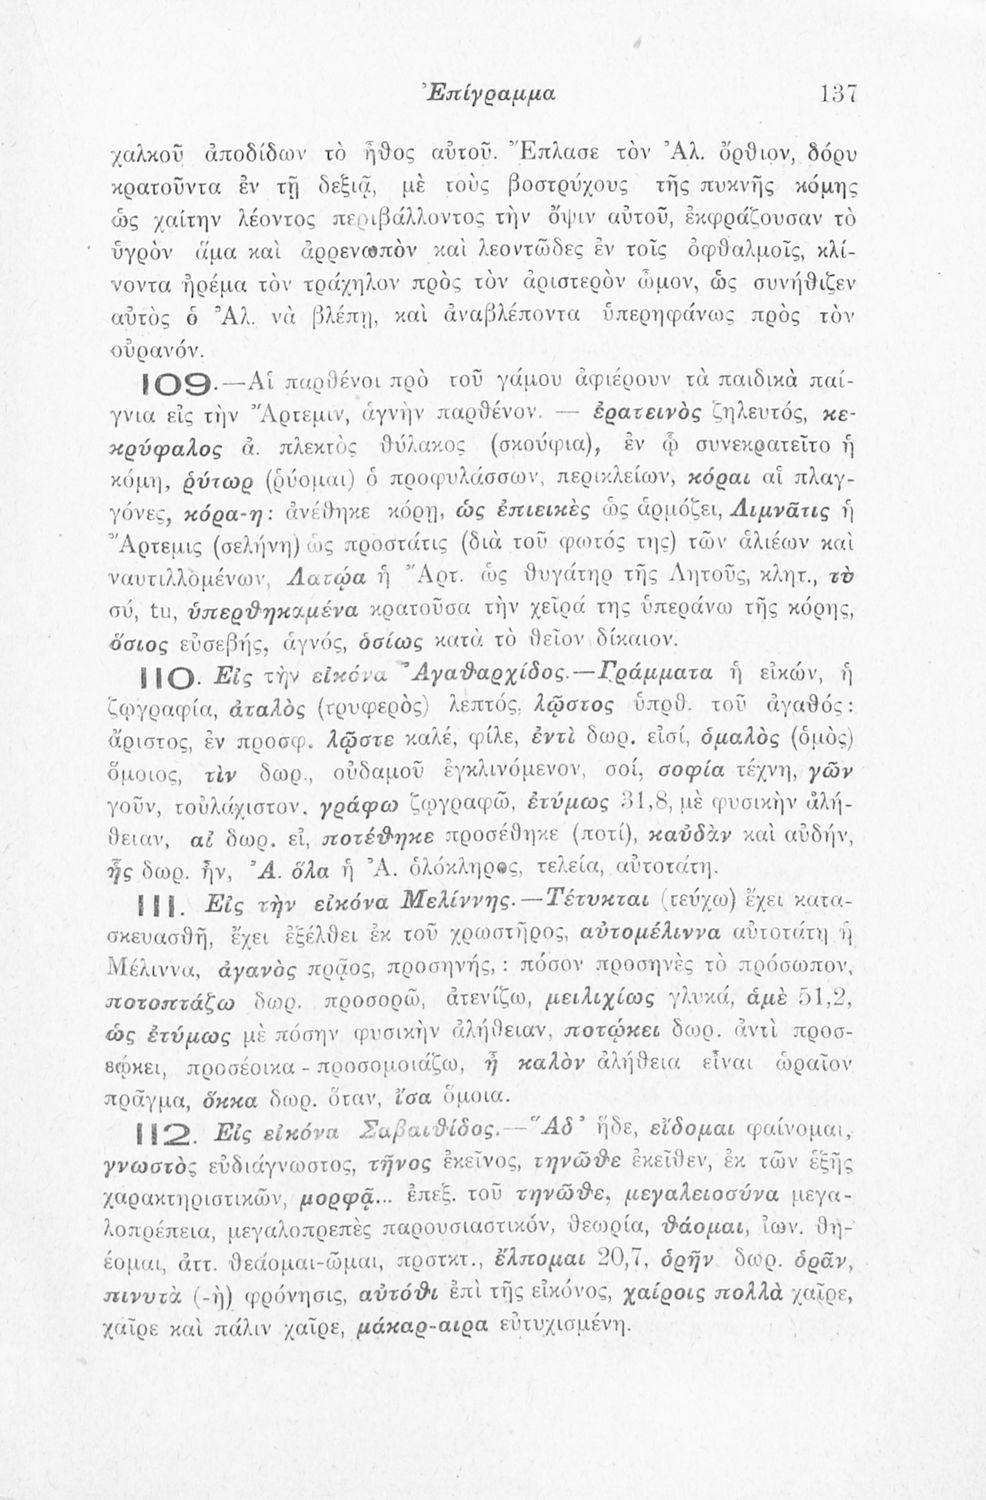 Ἐπίγραμμα 137
χαλκοῦ ἀποδίδων τὸ ἦθος αὐτοῦ. Ἔπλασε τὸν Ἀλ. ὄρθιον, δόρυ
κρατοῦντα ἐν τῇ δεξιᾷ, μὲ τοὺς βοστρύχους τῆς πυκνῆς κόμης
ὡς χαίτην λέοντος περιβάλλοντος τὴν ὄψιν αὐτοῦ, ἐκφράζουσαν τὸ
ὑγρὸν ἅμα καὶ ἀρρενωπὸν καὶ λεοντῶδες ἐν τοῖς ὀφθαλμοῖς, κλί-
νοντα ἠρέμα τὸν τράχηλον πρὸς τὸν ἀριστερὸν ὦμον, ὡς συνήθιζεν
αὐτὸς ὁ Ἀλ. νὰ βλέπῃ, καὶ ἀναβλέποντα ὑπερηφάνως πρὸς τὸν
οὐρανόν.
109.—Αἱ παρθένοι πρὸ τοῦ γάμου ἀφιέρουν τὰ παιδικὰ παί-
γνια εἰς τὴν Ἄρτεμιν, ἁγνὴν παρθένον. — ἐρατεινὸς ζηλευτός, κε-
κρύφαλος ἀ. πλεκτὸς θύλακος (σκούφια), ἐν ᾧ συνεκρατεῖτο ἡ
κόμη, ῥύτωρ (ῥύομαι) ὁ προφυλάσσων, περικλείων, κόραι αἱ πλαγ-
γόνες, κόρα-η: ἀνέθηκε κόρῃ, ὡς ἐπιεικὲς ὡς ἁρμόζει, Λιμνᾶτις ἡ
Ἄρτεμις (σελήνη) ὡς προστάτις (διὰ τοῦ φωτός της) τῶν ἁλιέων καὶ
ναυτιλλομένων, Λατῴα ἡ Ἄρτ. ὡς θυγάτηρ τῆς Λητοῦς, κλητ., τὺ
σύ, tu, ὑπερθηκαμένα κρατοῦσα τὴν χεῖρά της ὑπεράνω τῆς κόρης,
ὅσιος εὐσεβής, ἁγνός, ὁσίως κατὰ τὸ θεῖον δίκαιον.
110. Εἰς τὴν εἰκόνα Ἀγαθαρχίδος.—Γράμματα ἡ εἰκών, ἡ
ζῳγραφία, ἀταλὸς (τρυφερὸς) λεπτός, λῷστος ὑπρθ. τοῦ ἀγαθός:
ἄριστος, ἐν προσφ. λῷστε καλέ, φίλε, ἐντὶ δωρ. εἰσί, ὁμαλὸς (ὁμὸς)
ὅμοιος, τὶν δωρ., οὐδαμοῦ ἐγκλινόμενον, σοί, σοφία τέχνη, γῶν
γοῦν, τοὐλάχιστον. γράφω ζῳγραφῶ, ἐτύμως 31,8, μὲ φυσικὴν ἀλή-
θειαν, αἰ δωρ. εἰ, ποτέθηκε προσέθηκε (ποτί), καὐδὰν καὶ αὐδήν,
ἦς δωρ. ἦν, Ἀ. ὅλα ἡ Ἀ. ὁλόκληρος, τελεία, αὐτοτάτη.
111. Εἰς τὴν εἰκόνα Μελίννης.—Τέτυκται (τεύχω) ἔχει κατα-
σκευασθῆ, ἔχει ἐξέλθει ἐκ τοῦ χρωστῆρος, αὐτομέλιννα αὐτοτάτη ἡ
Μέλιννα, ἀγανὸς πρᾷος, προσηνής, : πόσον προσηνὲς τὸ πρόσωπον,
ποτοπτάζω δωρ. προσορῶ, ἀτενίζω, μειλιχίως γλυκά, ἁμὲ 51,2,
ὡς ἐτύμως μὲ πόσην φυσικὴν ἀλήθειαν, ποτῴκει δωρ. ἀντὶ προσ-
εῴκει, προσέοικα - προσομοιάζω, ἦ καλὸν ἀλήθεια εἶναι ὡραῖον
πρᾶγμα, ὅκκα δωρ. ὅταν, ἴσα ὅμοια.
112. Εἰς εἰκόνα Σαβαιθίδος.—Ἅδ' ἥδε, εἴδομαι φαίνομαι,
γνωστὸς εὐδιάγνωστος, τῆνος ἐκεῖνος, τηνῶθε ἐκεῖθεν, ἐκ τῶν ἑξῆς
χαρακτηριστικῶν, μορφᾷ... ἐπεξ. τοῦ τηνῶθε, μεγαλειοσύνα μεγα-
λοπρέπεια, μεγαλοπρεπὲς παρουσιαστικόν, θεωρία, θάομαι, ἰων. θη-
έομαι, ἀττ. θεάομαι-ῶμαι, προτκτ., ἔλπομαι 20,7, ὁρῆν δωρ. ὁρᾶν,
πινυτὰ (-ὴ) φρόνησις, αὐτόθι ἐπὶ τῆς εἰκόνος, χαίροις πολλὰ χαῖρε,
χαῖρε καὶ πάλιν χαῖρε, μάκαρ-αιρα εὐτυχισμένη.